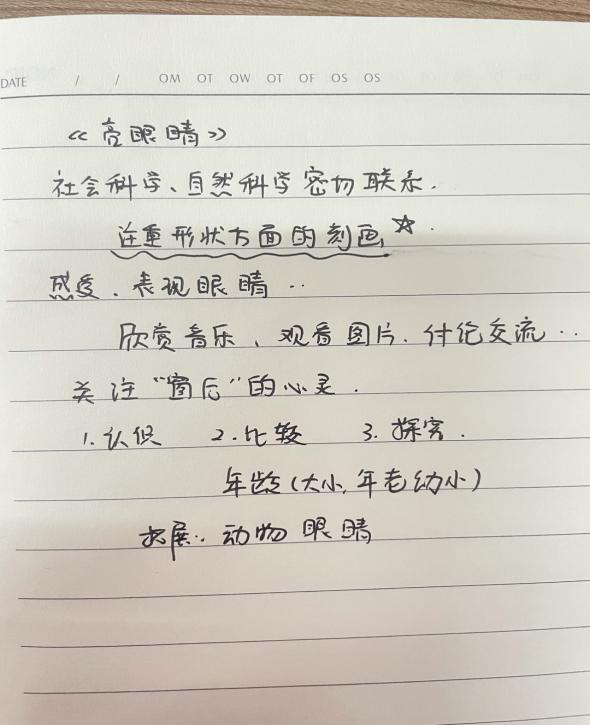 DATE / / OM OT OW OT OF OS OS
《亮眼睛》
社会科学、自然科学密切联系.
注重形状方面的刻画☆.
感受、表现眼睛..
欣赏音乐、观看图片、讨论交流..
关注“窗后”的心灵.
1.认识 2.比较 3.探究.
年龄(大小,年老幼小)
拓展:动物眼睛